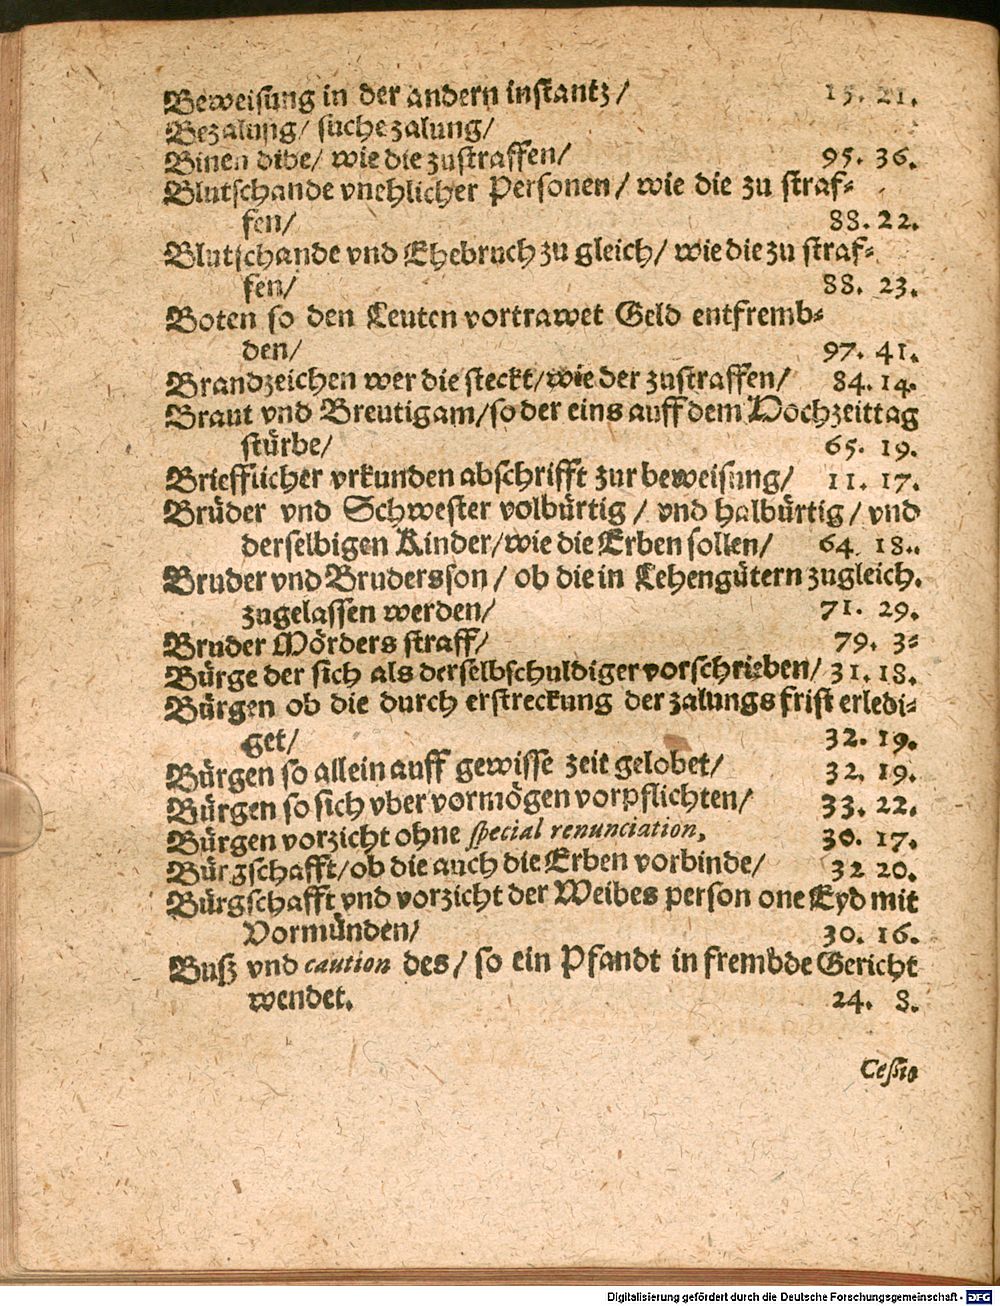 Beweisung in der andern instantz/ 15. 21.
Bezalung/ suche zalung/
Binen dibe/ wie die zustraffen/ 95. 36.
Blutschande vnehlicher Personen/ wie die zu straf⸗
fen/ 88. 22.
Blutschande vnd Ehebruch zu gleich/ wie die zu straf⸗
fen/ 88. 23.
Boten so den Leuten vortrawet Geld entfremb⸗
den/ 97. 41.
Brandzeichen wer die steckt/ wie der zustraffen/ 84. 14.
Braut vnd Breutigam/ so der eins auff dem Hochzeittag
stürbe/ 65. 19.
Briefflicher vrkunden abschrifft zur beweisung/ 11. 17.
Brüder vnd Schwester volbürtig/ vnd halbürtig/ vnd
derselbigen Kinder/ wie die Erben sollen/ 64. 18..
Bruder vnd Brudersson/ ob die in Lehengütern zugleich.
zugelassen werden/ 71. 29.
Bruder Mörders straff/ 79. 3⸗
Bürge der sich als der selbschuldiger vorschrieben/ 31. 18.
Bürgen ob die durch erstreckung der zalungs frist erledi⸗
get/ 32. 19.
Bürgen so allein auff gewisse zeit gelobet/ 32. 19.
Bürgen so sich vber vormögen vorpflichten/ 33. 22.
Bürgen vorzicht ohne special renunciation. 30. 17.
Bürgschafft/ ob die auch die Erben vorbinde/ 32 20.
Bürgschafft vnd vorzicht der Weibes person one Eyd mit
Vormünden/ 30. 16.
Buß vnd caution des/ so ein Pfandt in frembde Gericht
wendet. 24. 8.
Cessio
Digitalisierung gefördert durch die Deutsche Forschungsgemeinschaft - DFG